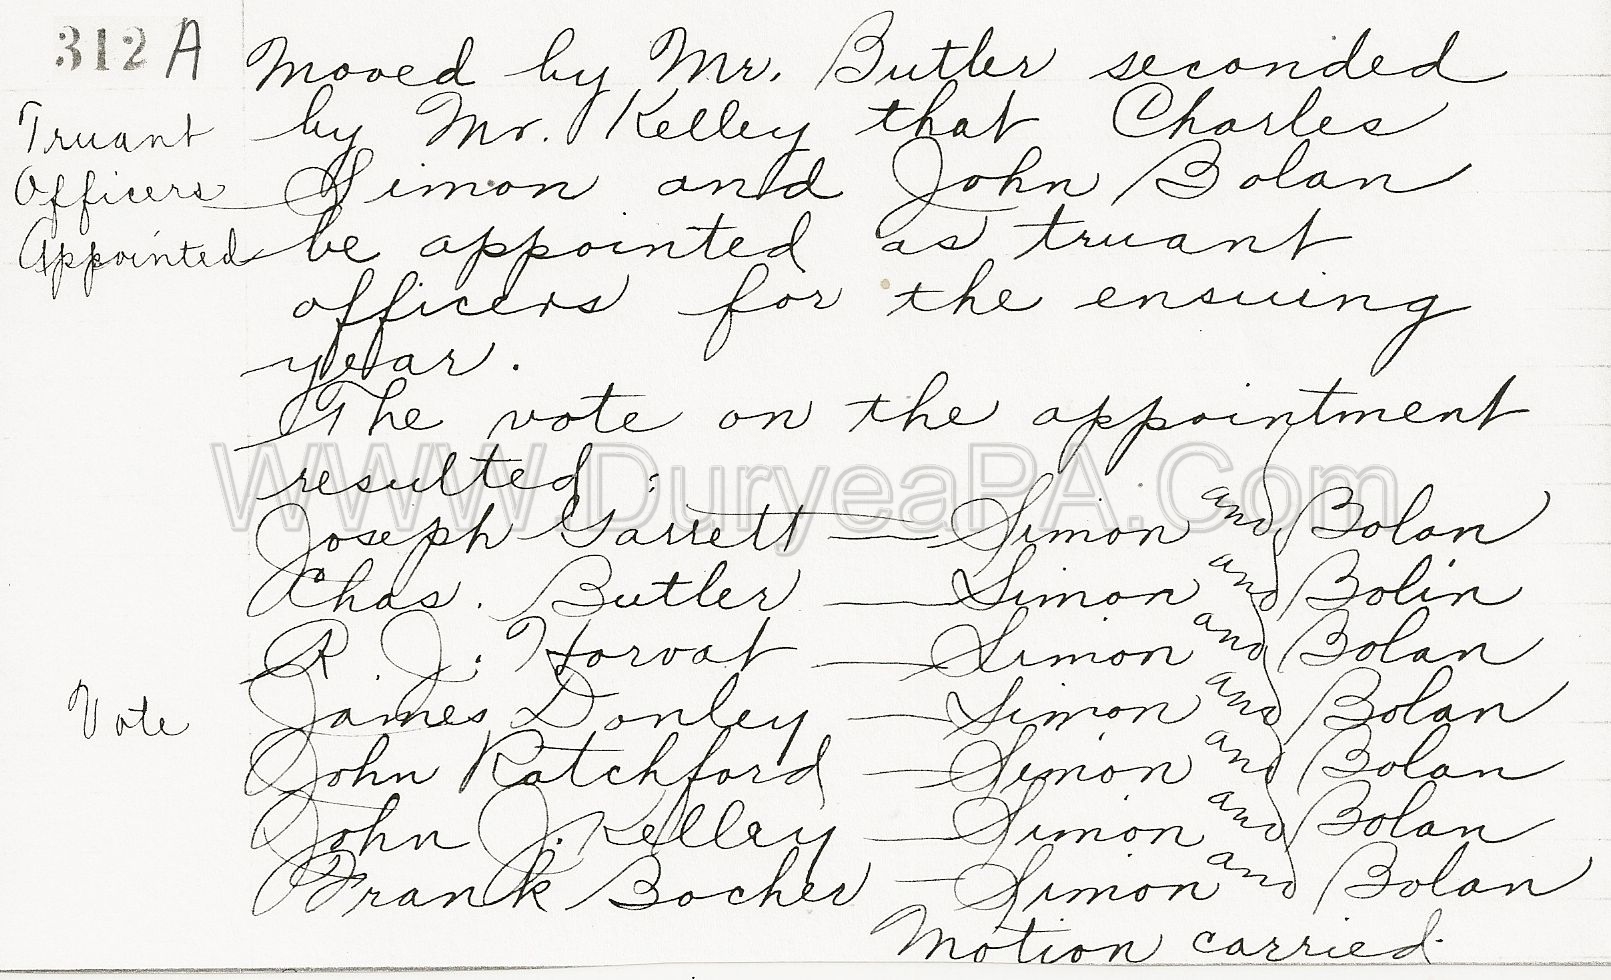 312 A
Moved by Mr. Butler seconded
Truant by Mr. Kelley that Charles
Officers Simon and John Bolan
Appointed be appointed as truant
officers for the ensuing
year.
The vote on the appointment
WWW.DuryeaPA.Com
resulted:
Joseph Garrett — Simon and Bolan
Chas. Butler — Simon and Bolin
R. J. Horvat — Simon and Bolan
Vote James Donley — Simon and Bolan
John Ratchford — Simon and Bolan
John J. Kelley — Simon and Bolan
Frank Bocher — Simon and Bolan
Motion carried.